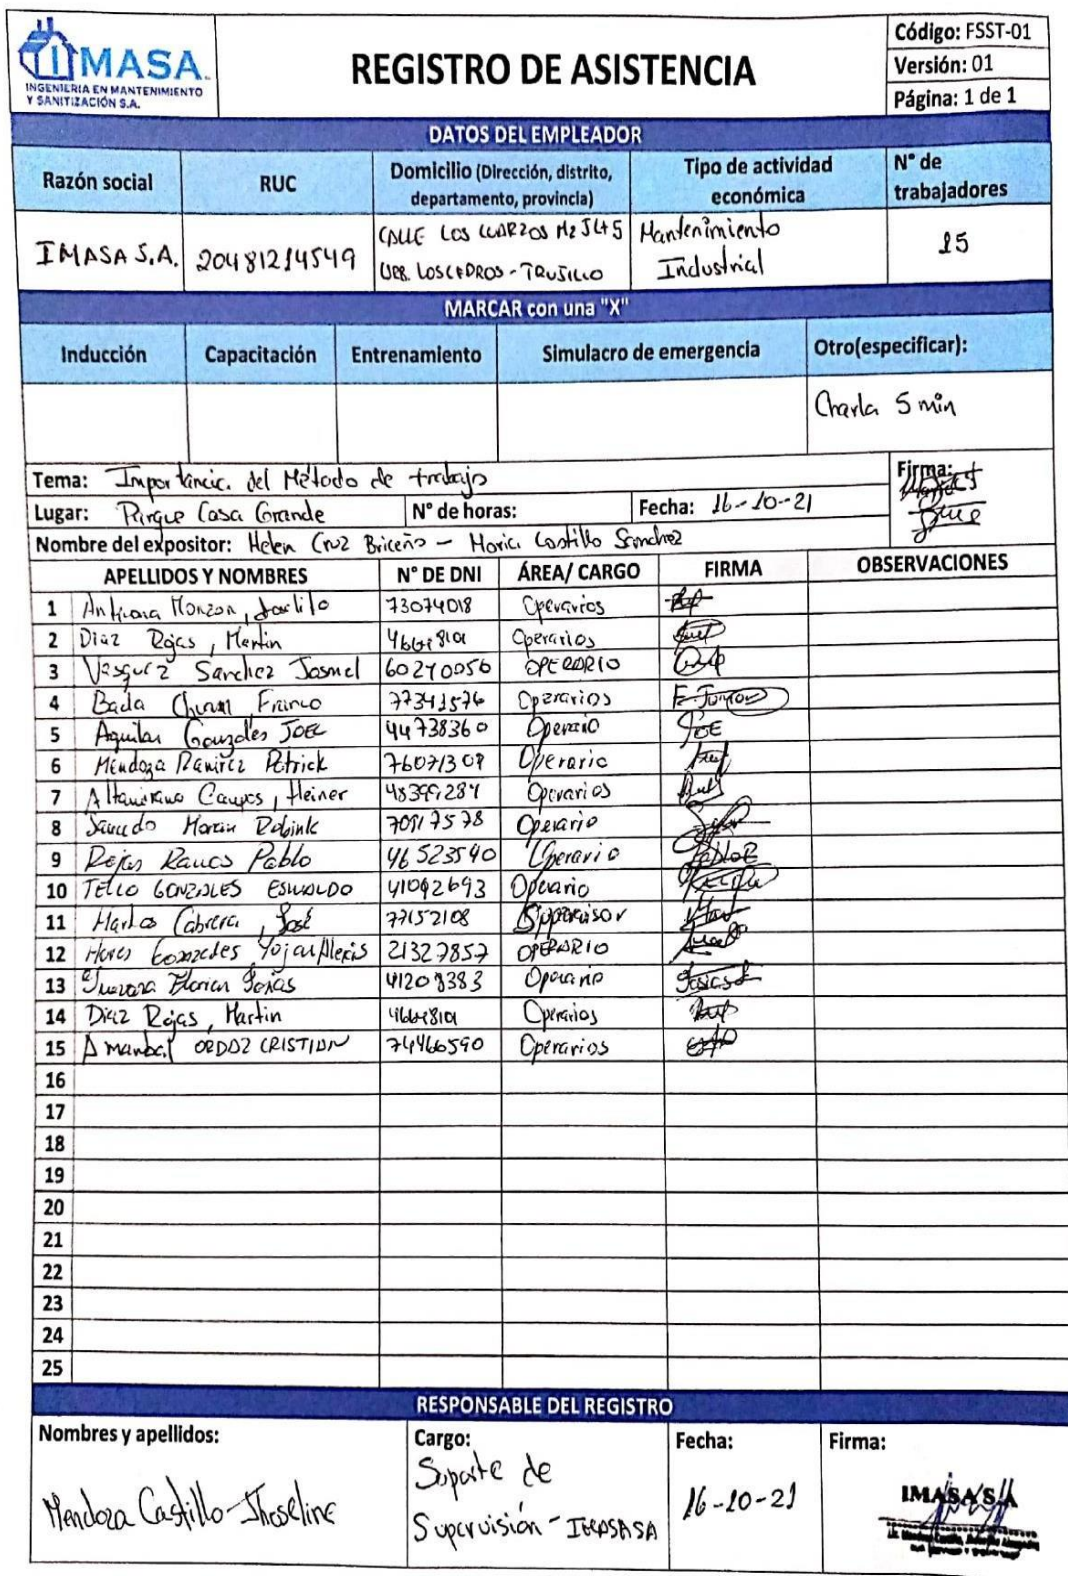 IMASA
INGENIERIA EN MANTENIMIENTO
Y SANITIZACIÓN S.A.
REGISTRO DE ASISTENCIA
Código: FSST-01
Versión: 01
Página: 1 de 1
DATOS DEL EMPLEADOR
Razón social RUC Domicilio (Dirección, distrito, departamento, provincia) Tipo de actividad económica N° de trabajadores
IMASA S.A. 20481214549 CALLE LOS Mz J Lt 5 URB. LOS CEDROS - TRUJILLO Mantenimiento Industrial 15
MARCAR con una "X"
Inducción Capacitación Entrenamiento Simulacro de emergencia Otro(especificar):
Charla 5 min
Tema: Importancia del Método de trabajo Firma:
Lugar: Parque Casa Grande N° de horas: Fecha: 16-10-21
Nombre del expositor: Helen Cruz Briceño - Maria Castillo Sanchez
APELLIDOS Y NOMBRES N° DE DNI ÁREA/ CARGO FIRMA OBSERVACIONES
1 73074018 Operarios
2 Diaz Rojas, Martin Operarios
3 Vasquez Sanchez Josmel 60270056 OPERARIO
4 Bada Franco 77341576 Operarios
5 Aguilar Gonzales JOEL 44738360 Operario JOE
6 Mendoza Ramirez Patrick Operario
7 Altamirano Campos, Heiner Operarios
8 70917578 Operario
9 Rojas Pablo 46523540 Operario
10 TELLO GONZALES ESWALDO 41092693 Operario
11 Cabrera, José 77152108 Supervisor
12 21327857 OPERARIO
13 Guevara Florian 41208383 Operario
14 Diaz Rojas, Martin Operarios
15 CRISTIAN 74466590 Operarios
16
17
18
19
20
21
22
23
24
25
RESPONSABLE DEL REGISTRO
Nombres y apellidos: Cargo: Fecha: Firma:
Mendoza Castillo Jhoseline Soporte de Supervisión - 16-10-21 IMASA S.A